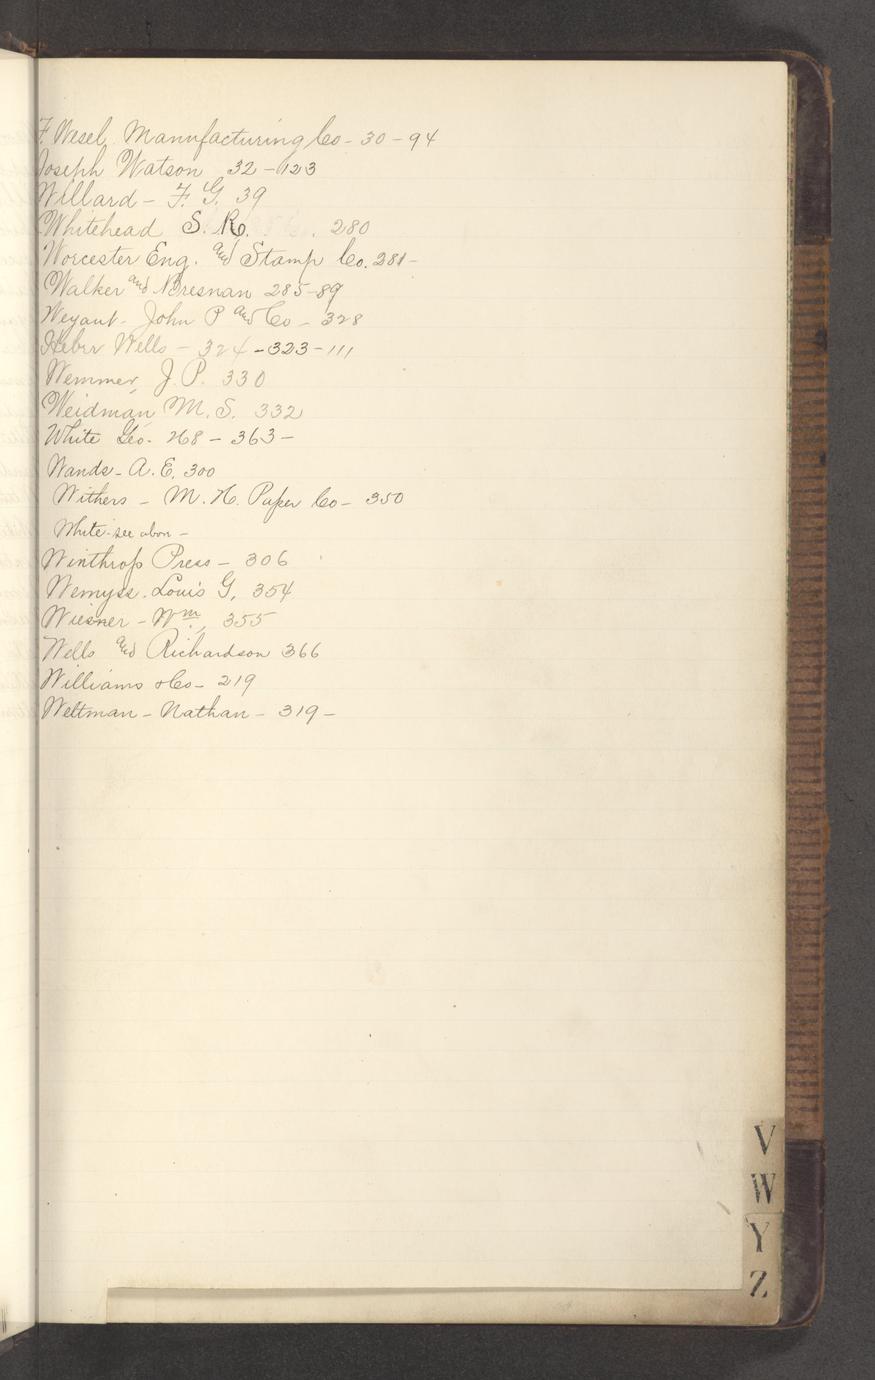 F. Wesel Manufacturing Co - 30 - 94
Joseph Watson 32 - 123
Willard - F. G. 39
Whitehead S. R. 280
Worcester Eng. and Stamp Co. 281 -
Walker and Bresnan 285-89
Weyant - John P and Co - 328
Heber Wells - 324 - 323 - 111
Wemmer, J. P. 330
Weidman M. S. 332
White Geo. 268 - 363 -
Wands - A. E. 300
Withers - M. H. Paper Co - 350
White - see abov -
Winthrop Press - 306
Wemyss. Louis G, 354
Wiesner - Wm., 355
Wells and Richardson 366
Williams & Co - 219
Weltman - Nathan - 319 -
V
W
Y
Z